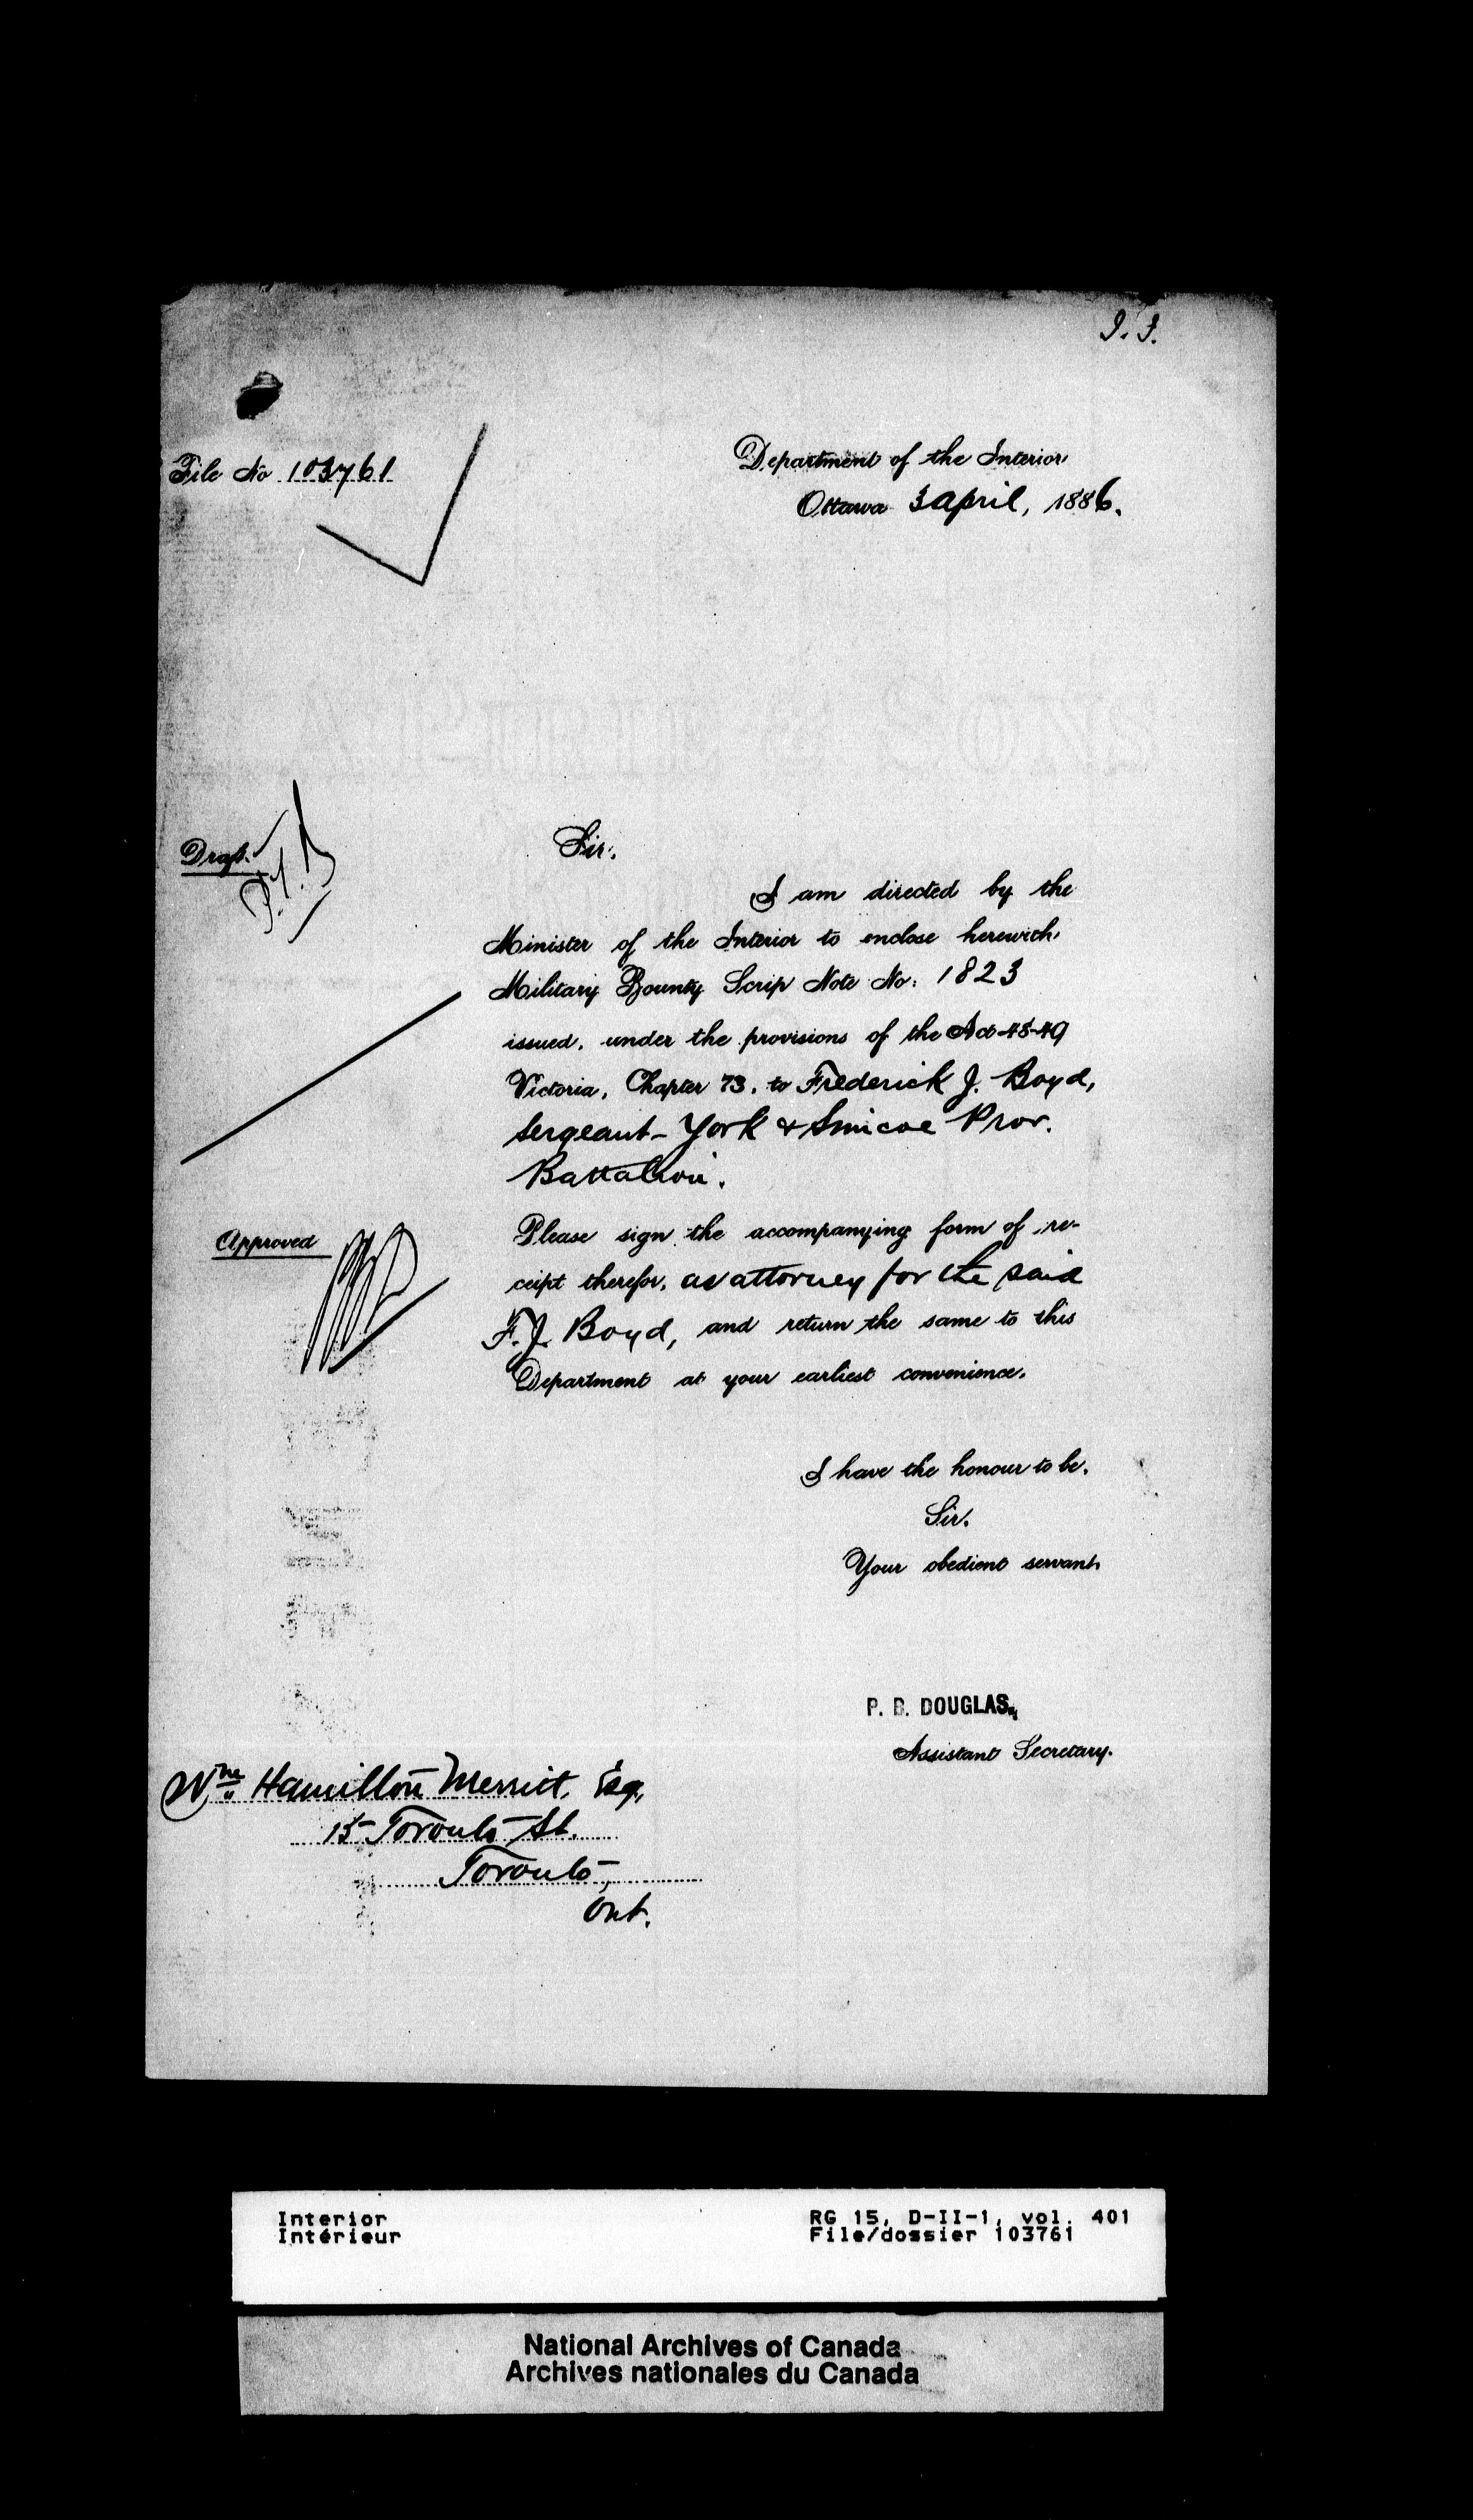 File No 103761
Department of the Interior
Ottawa 3 April, 1886.
Draft.
Sir,
I am directed by the
Minister of the Interior to enclose herewith
Military Bounty Scrip Note No. 1823
issued, under the provisions of the Act 48-49
Victoria, Chapter 73, to Frederick J. Boyd,
Sergeant - York & Simcoe Prov.
Battalion.
Approved
Please sign the accompanying form of re-
ceipt therefor, as attorney for the said
F. J. Boyd, and return the same to this
Department at your earliest convenience.
I have the honour to be,
Sir,
Your obedient servant,
P. B. DOUGLAS,
Assistant Secretary.
Wm Hamilton Merritt, Esq,
15 Toronto St.
Toronto,
Ont.
Interior
Intérieur
RG 15, D-II-1, vol. 401
File/dossier 103761
National Archives of Canada
Archives nationales du Canada